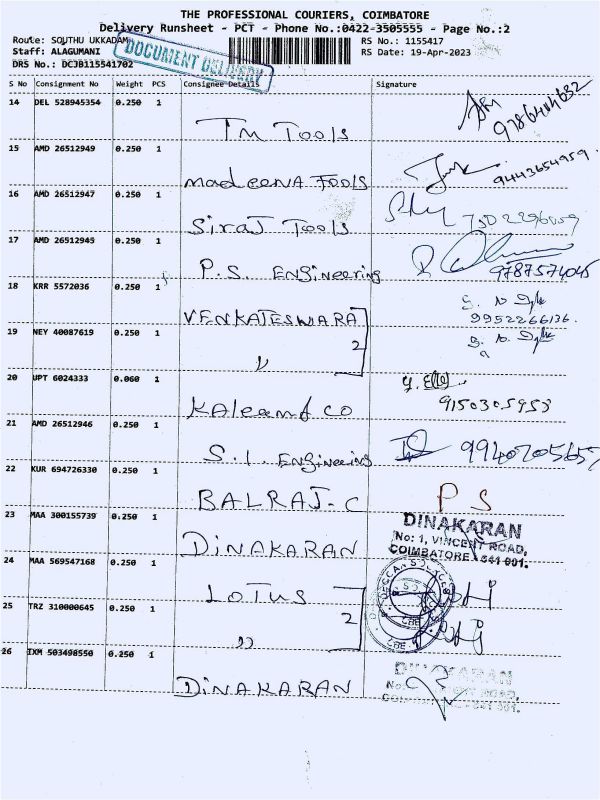 THE PROFESSIONAL COURIERS, COIMBATORE
Delivery Runsheet - PCT - Phone No.:0422-3505555 - Page No.:2
Route: SOUTHU UKKADAM
RS No.: 1155417
Staff: ALAGUMANI
RS Date: 19-Apr-2023
DOCUMENT DELIVERY
DRS No.: DCJB115541702
S No Consignment No Weight PCS Consignee Details Signature
14 DEL 528945354 0.250 1
TM TOOLS
9786404632
15 AMD 26512949 0.250 1
MADEENA TOOLS
9443654959
16 AMD 26512947 0.250 1
SIRAJ TOOLS
7502296059
17 AMD 26512945 0.250 1
P.S. ENGINEERING
9787574045
18 KRR 5572036 0.250 1
VENKATESWARA
9952266136.
19 NEY 40087619 0.250 1
2
〃
20 UPT 6024333 0.060 1
KALEEM & CO
9150305953
21 AMD 26512946 0.250 1
S.I. ENGINEERING
9940705657
22 KUR 694726330 0.250 1
BALRAJ-C
PS
23 MAA 300155739 0.250 1
DINAKARAN
DINAKARAN
No: 1, VINCENT ROAD,
COIMBATORE - 641 001.
24 MAA 569547168 0.250 1
LOTUS
25 TRZ 310000645 0.250 1
2
〃
26 IXM 503498550 0.250 1
DINAKARAN
DINAKARAN